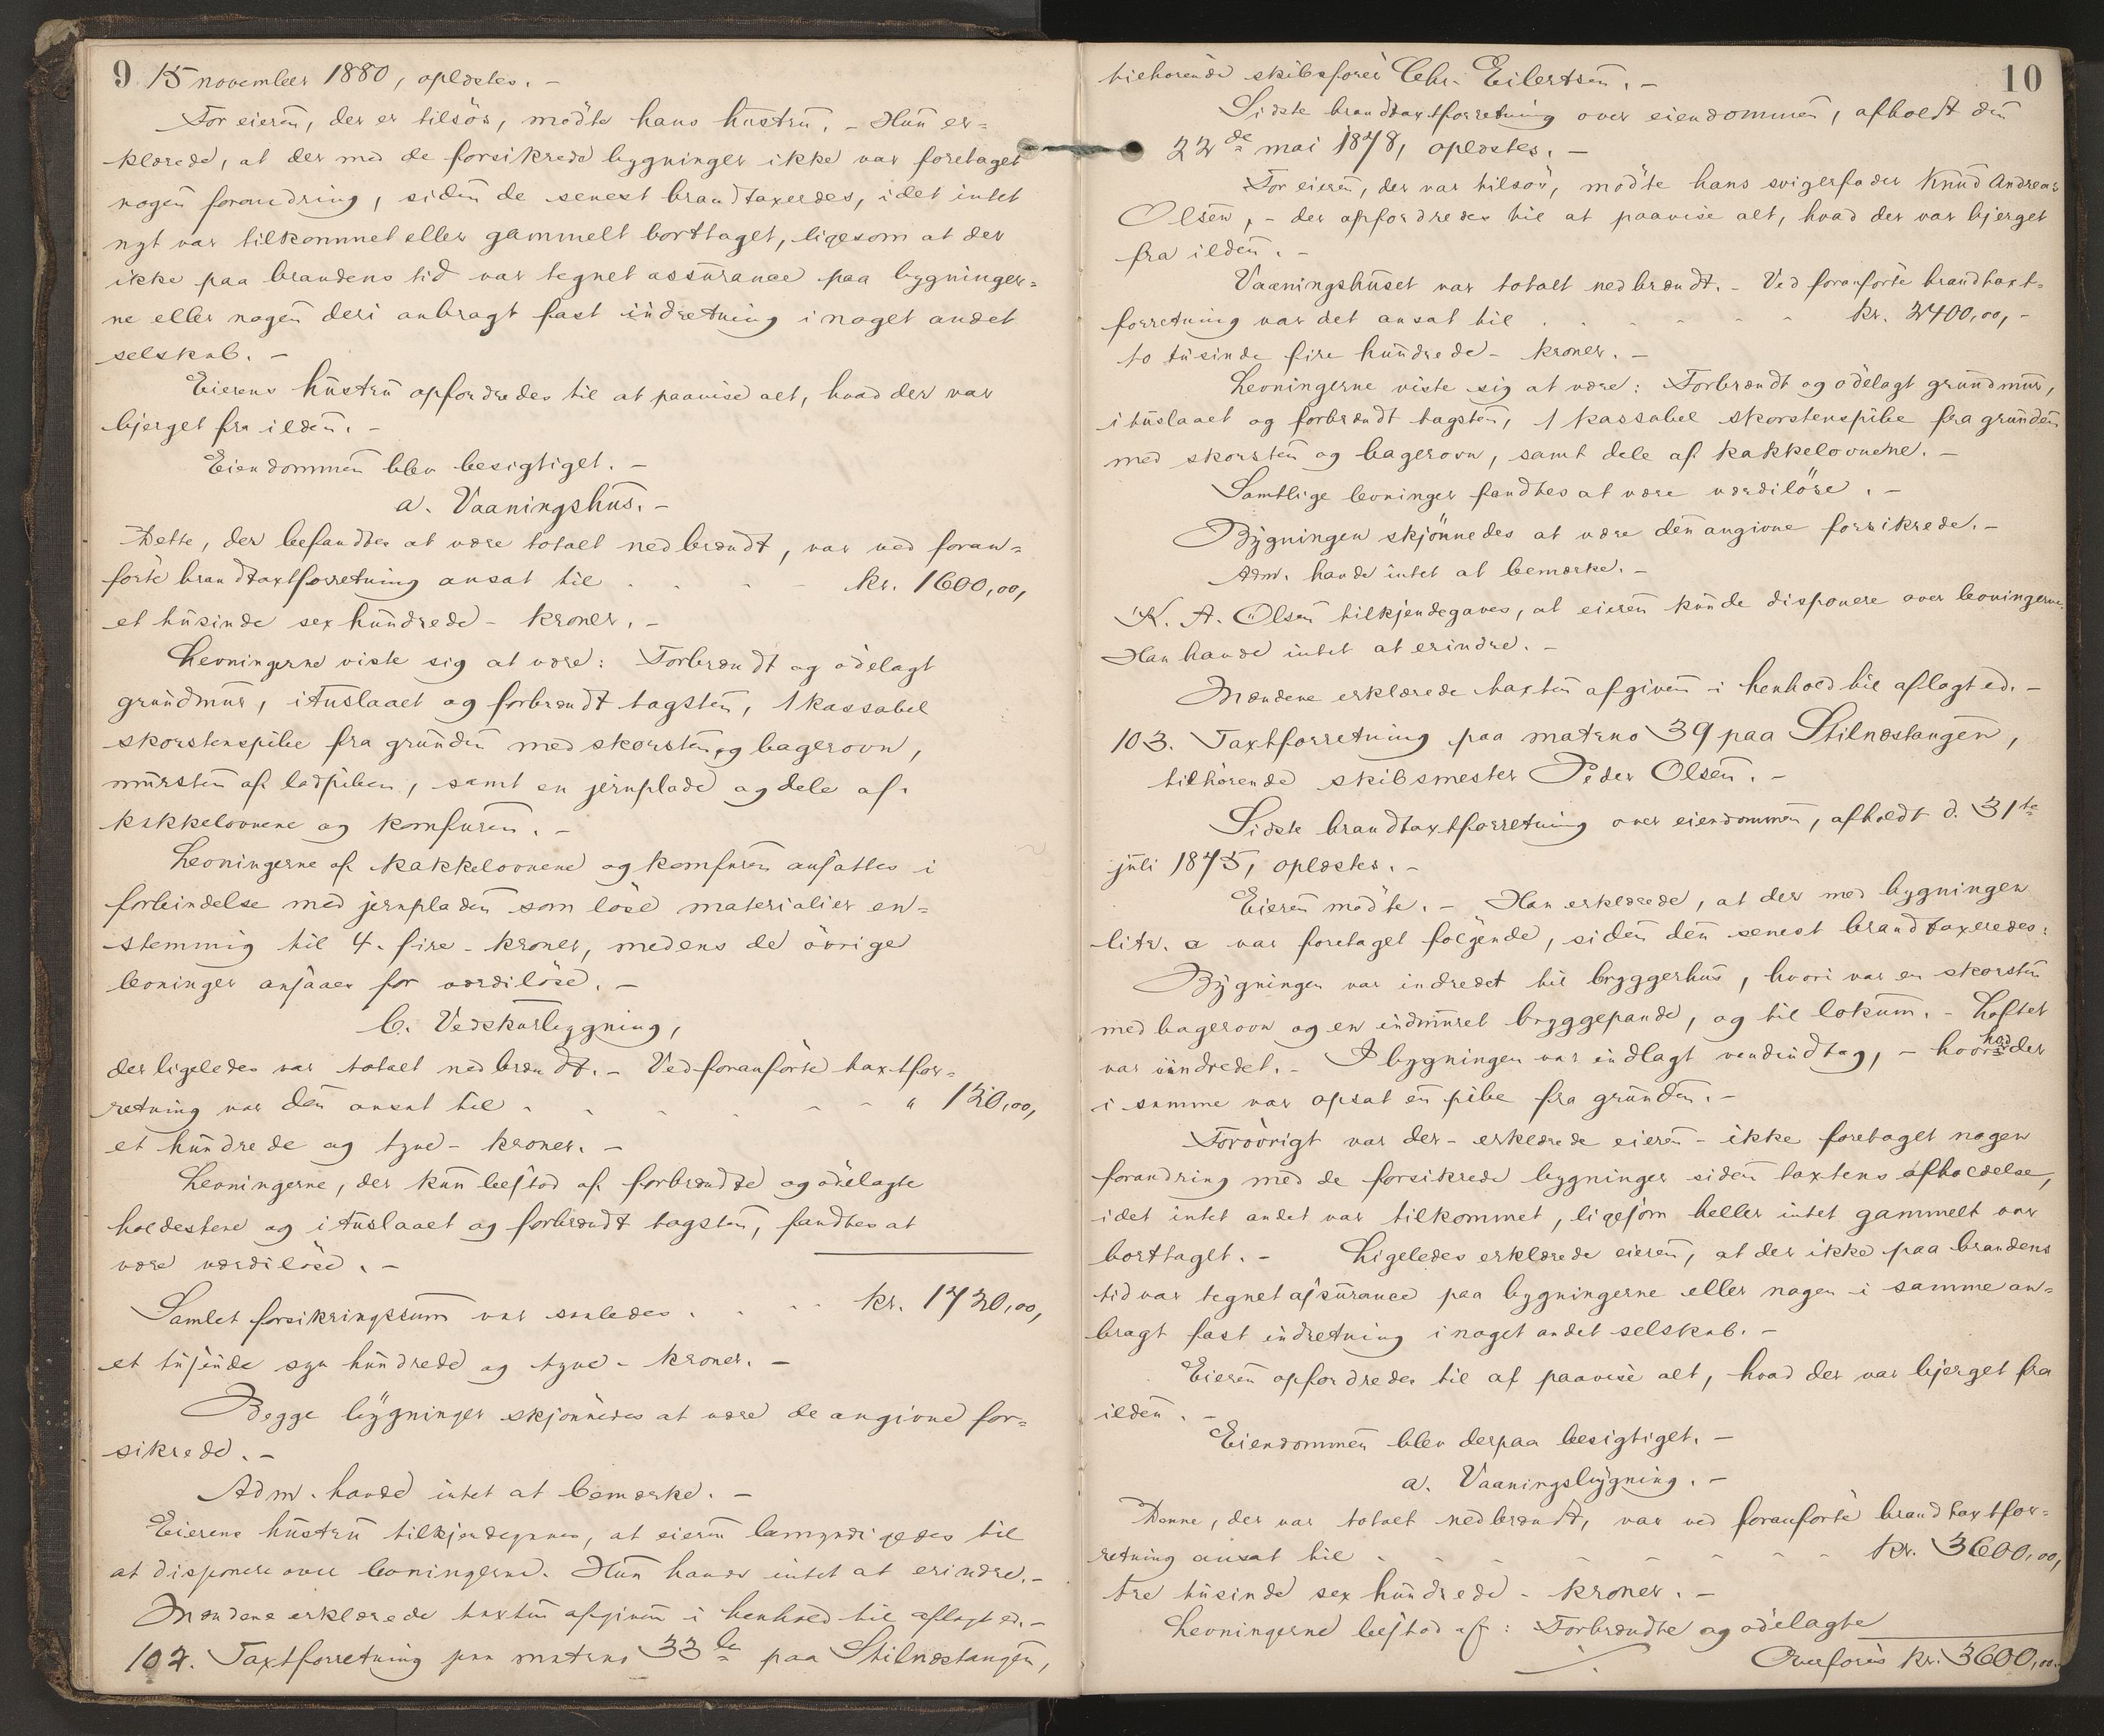 9
15 november 1880, oplæstes. –
For eieren, der er tilsös, mödte hans hustru. – Hun er=
klærede, at der med de forsikrede bygninger ikke var foretaget
nogen forandring, siden de senest brandtaxeredes, idet intet
nyt var tilkommet eller gammelt borttaget, ligesom at der
ikke paa brandens tid var tegnet assurance paa bygninger=
ne eller nogen deri anbragt fast indretning i noget andet
selskab. –
Eierens hustru opfordredes til at paavise alt, hvad der var
bjerget fra ilden. –
Eiendommen blev besigtiget. –
a. Vaaningshus. –
Dette, der befandtes at være totalt nedbrændt, var ved foran=
förte brandtaxtforretning ansat til . . . . kr. 1600,00,
et tusinde sex hundrede – kroner. –
Levningerne viste sig at være: Forbrændt og ödelagt
grundmur, ituslaaet og forbrændt tagsten, 1 kassabel
skorstenspibe fra grunden med skorsten og bagerovn,
mursten af ladpiben, samt en jernplade og dele af
kakkelovnene og komfuren. –
Levningerne af kakkelovnene og komfuren ansattes i
forbindelse med jernpladen som löse materialier en=
stemmig til 4 – fire – kroner, medens de övrige
levninger ansaaes for værdilöse. –
b. Vedskurbygning,
der ligeledes var totalt nedbrændt. – Ved foranförte taxtfor=
retning var den ansat til . . . . . . " 120,00,
et hundrede og tyve – kroner. –
Levningerne, der kun bestod af forbrændte og ödelagte
holdestene og ituslaaet og forbrændt tagsten, fandtes at
være værdilöse. –
Samlet forsikringssum var saaledes . . . . kr. 1720,00,
et tusinde syv hundrede og tyve – kroner. –
Begge bygninger skjönnedes at være de angivne for=
sikrede. –
Adm. havde intet at bemærke. –
Eierens hustru tilkjendegaves, at eieren bemyndigedes til
at disponere over levningerne. Hun havde intet at erindre. –
Mændene erklærede taxten afgiven i henhold til aflagt ed. –
102. Taxtforretning paa matrno 33 b paa Stilnæstangen,
10
tilhörende skibsförer Chr. Eilertsen. –
Sidste brandtaxtforretning over eiendommen, afholdt den
22de mai 1878, oplæstes. –
For eieren, der var tilsös, mödte hans svigerfader Knud Andreas
Olsen, – der opfordredes til at paavise alt, hvad der var bjerget
fra ilden. –
Vaaningshuset var totalt nedbrændt. – Ved foranförte brandtaxt=
forretning var det ansat til . . . . . . kr. 2400,00, –
to tusinde fire hundrede – kroner. –
Levningerne viste sig at være: Forbrændt og ödelagt grundmur,
ituslaaet og forbrændt tagsten, 1 kassabel skorstenspibe fra grunden
med skorsten og bagerovn, samt dele af kakkelovnene. –
Samtlige levninger fandtes at være værdilöse. –
Bygningen skjönnedes at være den angivne forsikrede. –
Adm. havde intet at bemærke. –
K. A. Olsen tilkjendegaves, at eieren kunde disponere over levningerne.
Han havde intet at erindre. –
Mændene erklærede taxten afgiven i henhold til aflagt ed. –
103. Taxtforretning paa matrno 39 paa Stilnæstangen,
tilhörende skibsmester Peder Olsen. –
Sidste brandtaxtforretning over eiendommen, afholdt d. 31te
juli 1875, oplæstes. –
Eieren mödte. – Han erklærede, at der med bygningen
litr. a var foretaget fölgende, siden den senest brandtaxeredes:
Bygningen var indredet til bryggerhus, hvori var en skorsten
med bagerovn og en indmuret bryggepande, og til lokum. – Loftet
var uindredet. – I bygningen var indlagt vandindtag, – hvorhos der
i samme var opsat en pibe fra grunden. –
Forövrigt var der – erklærede eieren – ikke foretaget nogen
forandring med de forsikrede bygninger siden taxtens afholdelse,
idet intet andet var tilkommet, ligesom heller intet gammelt var
borttaget. – Ligeledes erklærede eieren, at der ikke paa brandens
tid var tegnet assurance paa bygningerne eller nogen i samme an=
bragt fast indretning i noget andet selskab. –
Eieren opfordredes til at paavise alt, hvad der var bjerget fra
ilden. –
Eiendommen blev derpaa besigtiget. –
a. Vaaningsbygning. –
Denne, der var totalt nedbrændt, var ved foranförte brandtaxtfor=
retning ansat til . . . . . . . . kr. 3600,00,
tre tusinde sex hundrede – kroner. –
Levningerne bestod af: Forbrændte og ödelagte
Overföres kr. 3600,00.